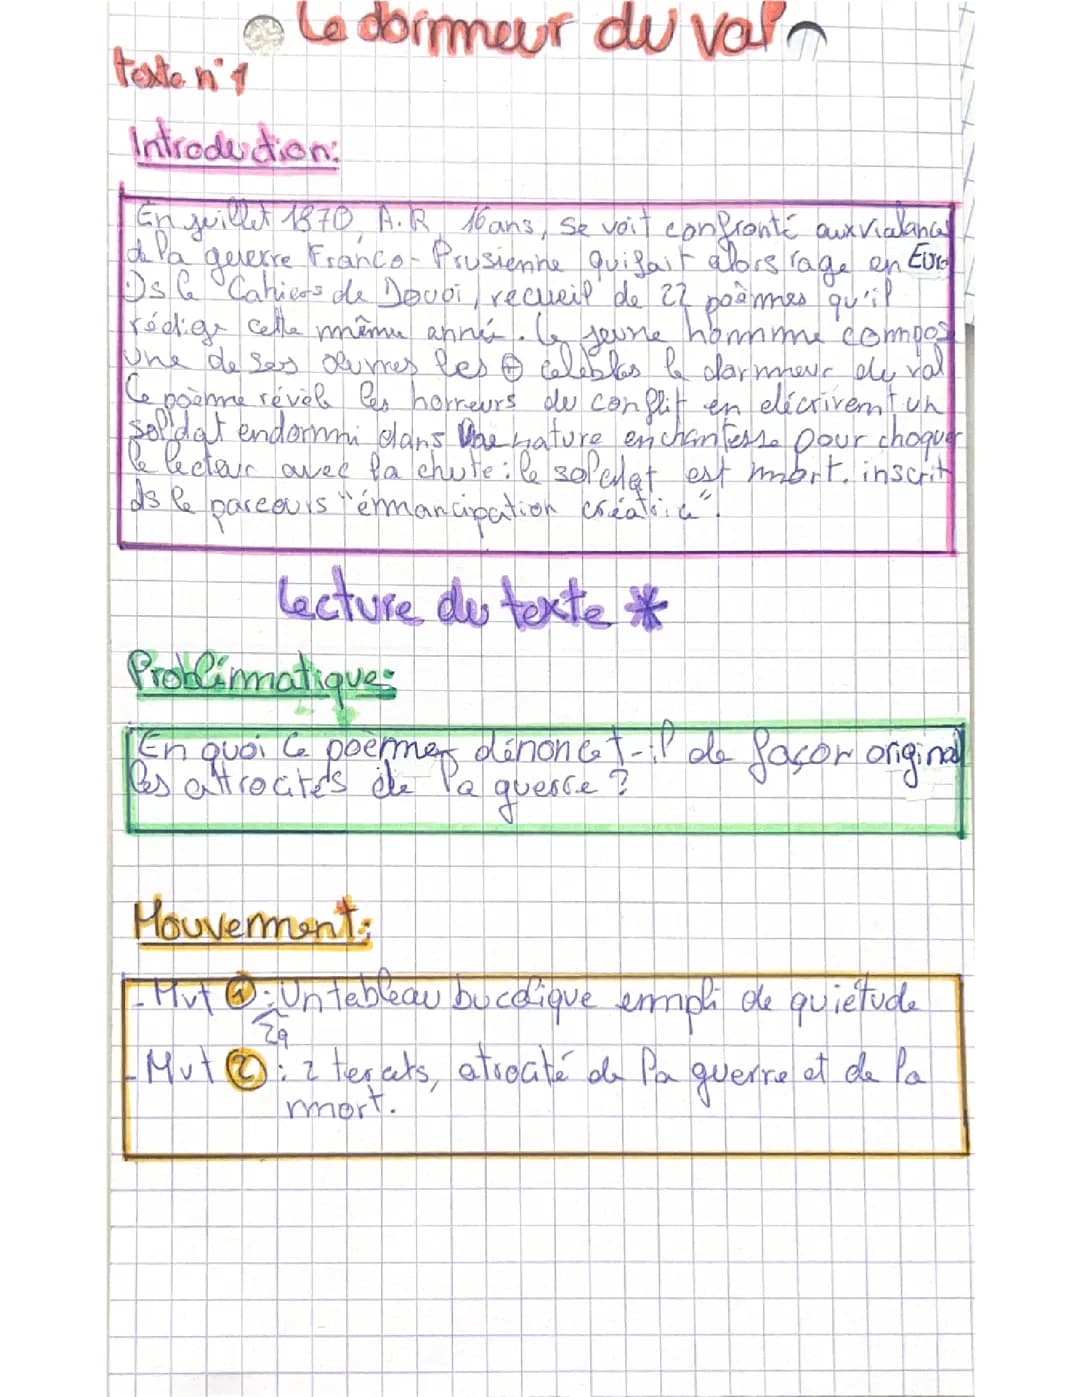 Le dormeur du val
texte n°1
Introduction:
En juillet 1870, A.R, 16 ans, se voit confronté aux violances
de la guerre Franco-Prusienne qui fait alors rage en Euro
Ds le "Cahiers de Douai, recueil de 22 poèmes qu'il
rédige cette même année. Le jeune homme compos
une de ses œuvres les ⊕ célèbles le dormeur du val
Ce poème révèle les horreurs du conflit en décrivent un
soldat endormi dans une nature enchantesse pour choquer
le lecteur avec la chute : le soldat est mort. inscrit
ds le parcours "émancipation créatrice".
Lecture du texte *
Problématique:
En quoi ce poèmes dénoncet-il de façon original
les attrocités de la guerre ?
Mouvement:
- Mvt ①: Un tableau bucolique empli de quiétude
2q
- Mvt ②: 2 tercets, atrocité de la guerre et de la
mort.